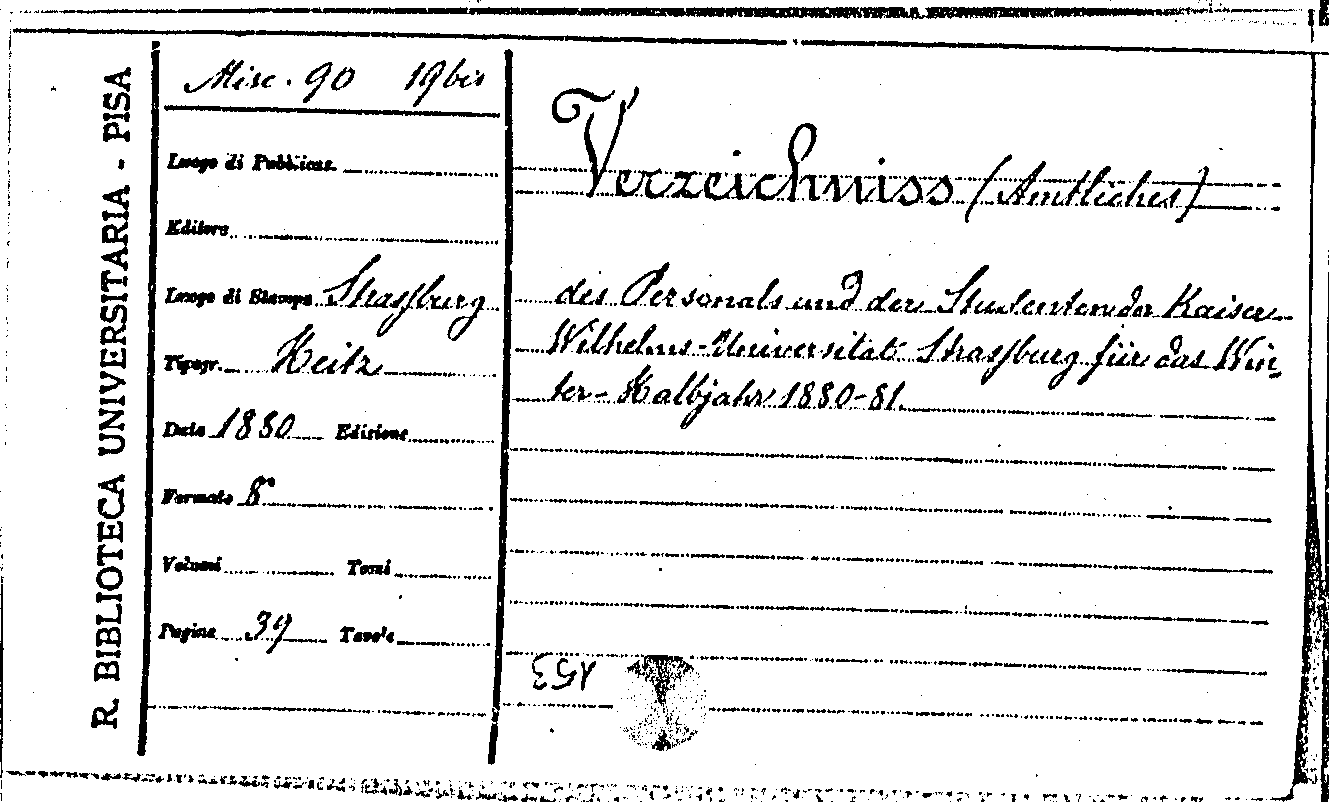 R. BIBLIOTECA UNIVERSITARIA - PISA
Misc. 90 19 bis
Luogo di Pubblicaz.
Editore
Luogo di Stampa Strassburg
Tipogr. Heitz
Data 1880 Edizione
Formato 8°
Volumi Tomi
Pagine 39 Tavole
Verzeichniss (Amtliches)
des Personals und der Studenten der Kaiser-
Wilhelms-Universität Strassburg für das Win-
ter-Halbjahr 1880-81.
153